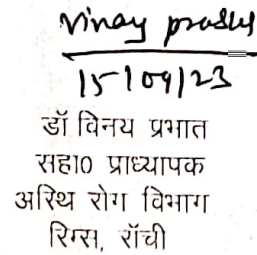 Vinay prabhat
15/09/23
डॉ विनय प्रभात
सहा0 प्राध्यापक
अस्थि रोग विभाग
रिम्स, राँची